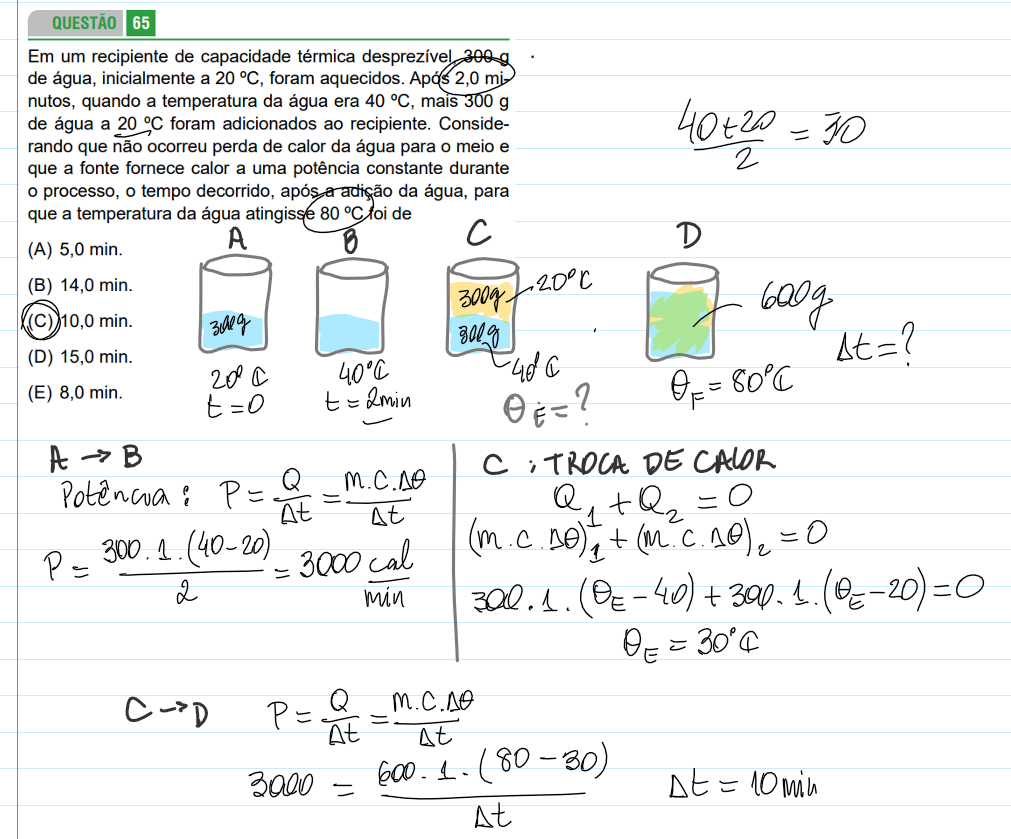 QUESTÃO 65
Em um recipiente de capacidade térmica desprezível, 300 g
de água, inicialmente a 20 ºC, foram aquecidos. Após 2,0 mi-
nutos, quando a temperatura da água era 40 ºC, mais 300 g
de água a 20 ºC foram adicionados ao recipiente. Conside-
rando que não ocorreu perda de calor da água para o meio e
que a fonte fornece calor a uma potência constante durante
o processo, o tempo decorrido, após a adição da água, para
que a temperatura da água atingisse 80 ºC foi de
(A) 5,0 min.
(B) 14,0 min.
(C) 10,0 min.
(D) 15,0 min.
(E) 8,0 min.
40+20/2 = 30
A
B
C
D
300g
300g
300g
20°C
40°C
600g
20°C
t=0
40°C
t=2min
θE=?
θF=80°C
Δt=?
A → B
Potência: P = Q/Δt = m.c.Δθ/Δt
P = 300.1.(40-20)/2 = 3000 cal/min
C: TROCA DE CALOR
Q1 + Q2 = 0
(m.c.Δθ)1 + (m.c.Δθ)2 = 0
300.1.(θE-40) + 300.1.(θE-20) = 0
θE = 30°C
C → D
P = Q/Δt = m.c.Δθ/Δt
3000 = 600.1.(80-30)/Δt
Δt = 10min